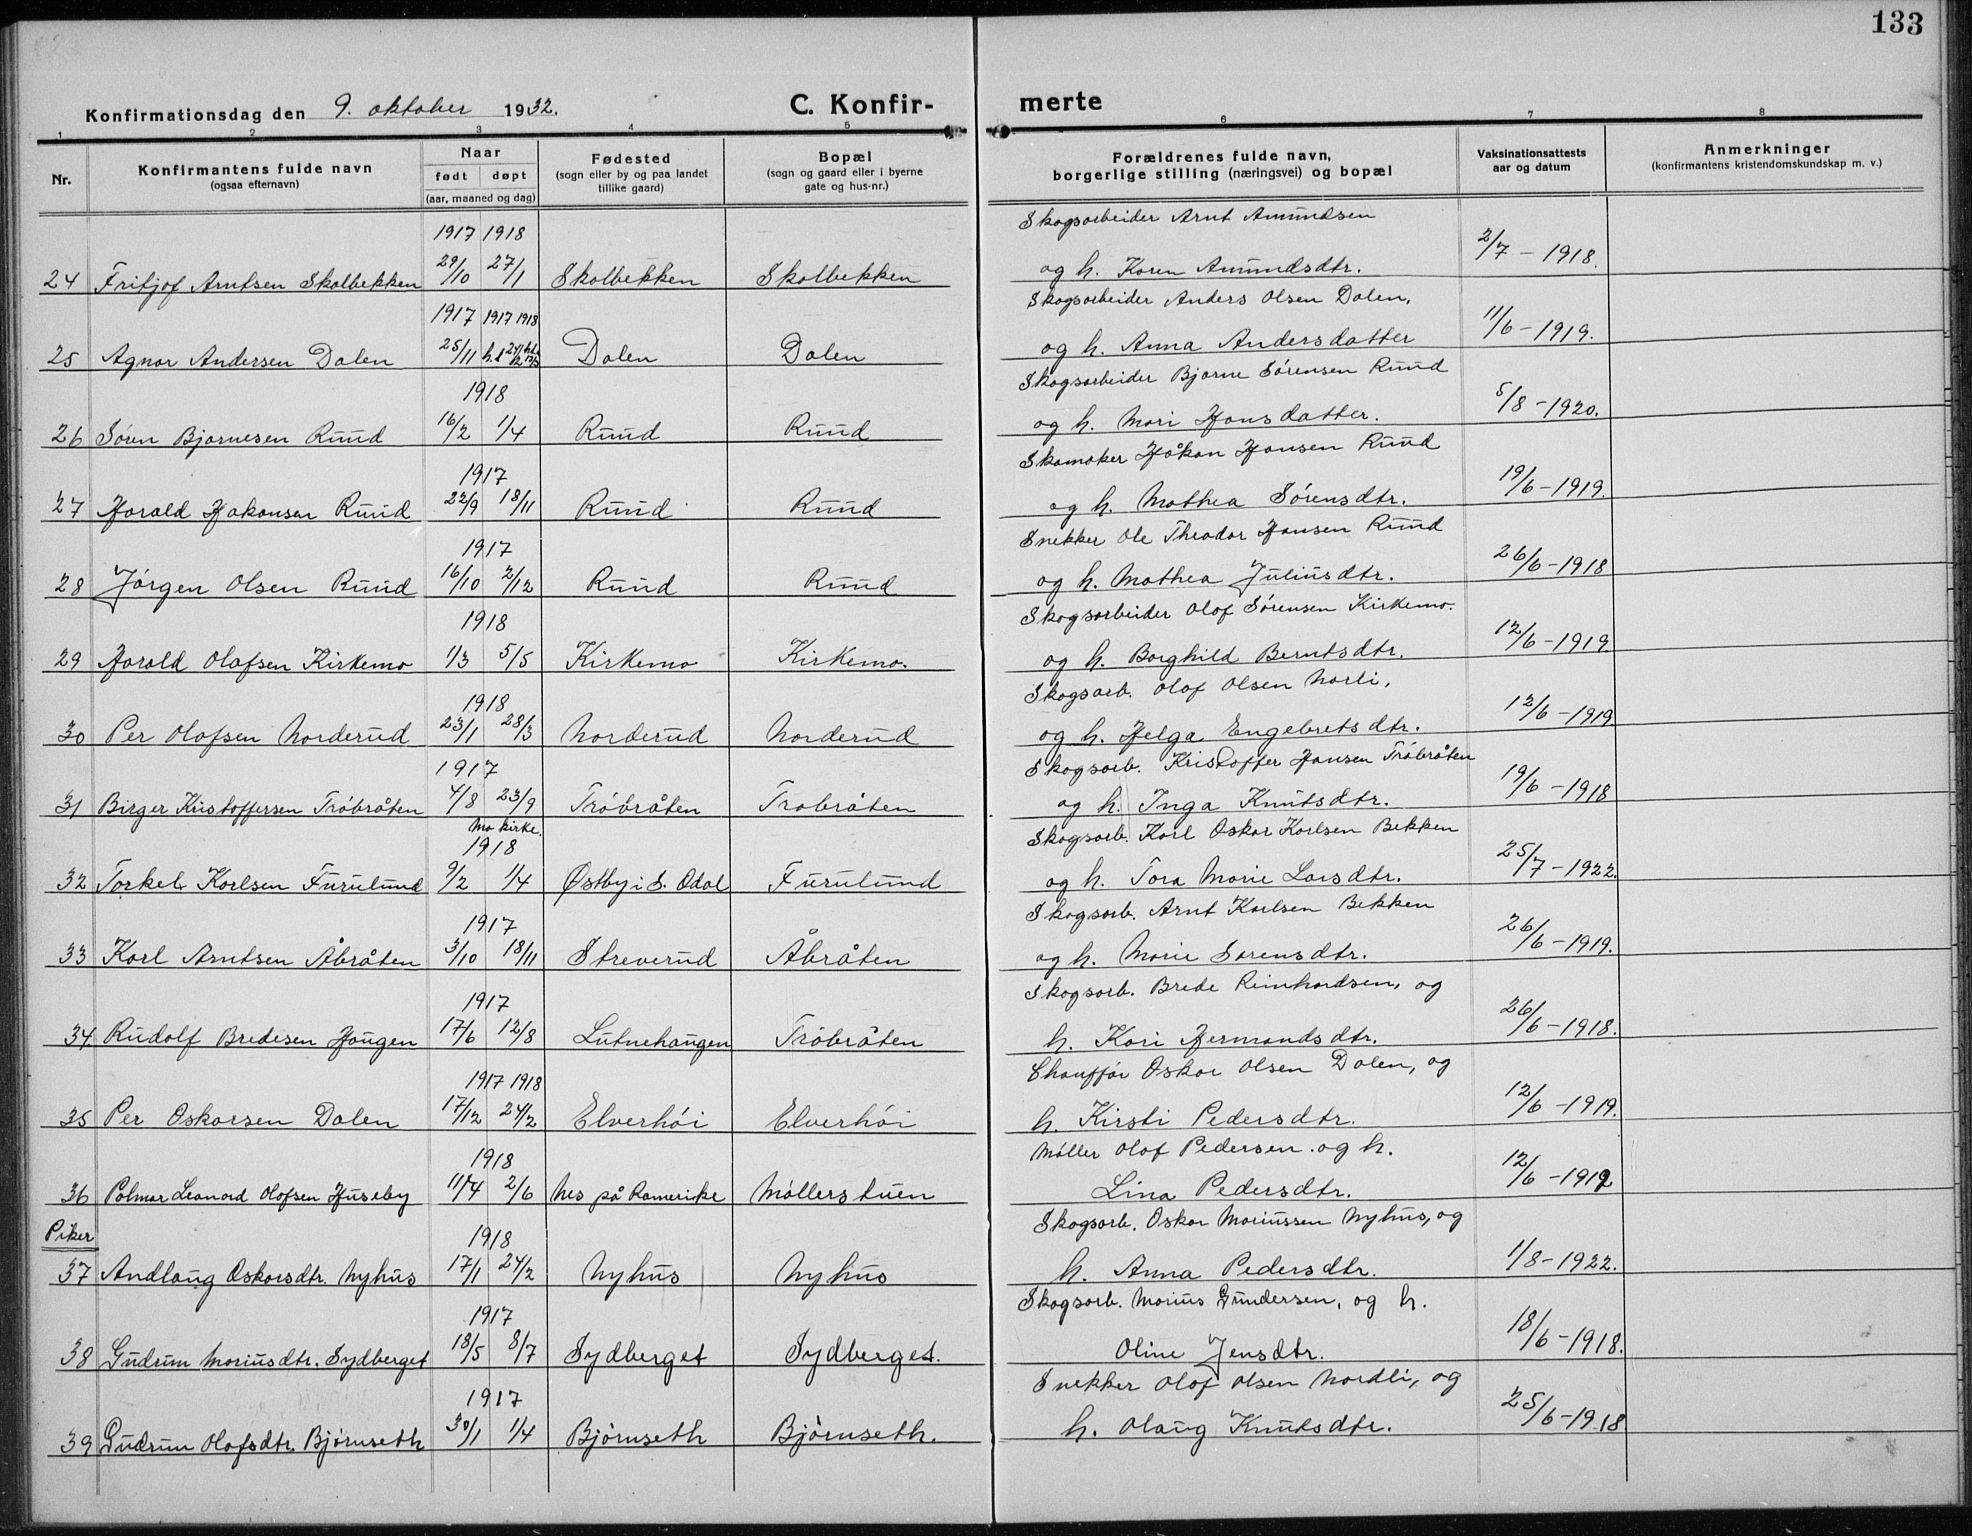 133
Konfirmationsdag den 9. oktober 1932. C. Konfir- merte
1 2 3 4 5 6 7 8
Nr. Konfirmantens fulde navn (ogsaa efternavn) Naar født døpt (aar, maaned og dag) Fødested (sogn eller by og paa landet tillike gaard) Bopæl (sogn og gaard eller i byerne gate og hus-nr.) Forældrenes fulde navn, borgerlige stilling (næringsvei) og bopæl Vaksinationsattests aar og datum Anmerkninger (konfirmantens kristendomskundskap m. v.)
1917 1918 Skogsarbeider Arnt Amundsen
24 Fritjof Arntsen Skolbekken 29/10 27/1 Skolbekken Skolbekken og h. Karen Amundsdtr. 2/7 - 1918.
1917 1917 1918 Skogsarbeider Anders Olsen Dalen,
25 Agnar Andersen Dalen 25/11 Dalen Dalen og h. Anna Andersdatter 11/6 - 1919.
1918 Skogsarbeider Bjarne Sørensen Ruud
26 Søren Bjarnesen Ruud 16/2 1/4 Ruud Ruud og h. Mari Hansdatter. 5/8 - 1920.
1917 Skomaker Håkon Hansen Ruud
27 Harald Hakonsen Ruud 22/9 18/11 Ruud Ruud og h. Mathea Sørensdtr. 19/6 - 1919.
1917 Snekker Ole Theodor Hansen Ruud
28 Jørgen Olsen Ruud 16/10 2/12 Ruud Ruud og h. Mathea Juliusdtr. 26/6 - 1918
1918 Skogsarbeider Olof Sørensen Kirkemo.
29 Harald Olafsen Kirkemo 1/3 5/5 Kirkemo Kirkemo. og h. Borghild Berntsdtr. 12/6 - 1919
1918 Skogsarb. Olof Olsen Norli,
30 Per Olofsen Norderud 23/1 28/3 Norderud Norderud og h. Helga Engebretsdtr. 12/6 - 1919.
1917 Skogsarb. Kristoffer Hansen Trøbråten
31 Birger Kristoffersen Trøbråten 4/8 23/9 Trøbråten Trøbråten og h. Inga Knutsdtr. 19/6 - 1918
Mo kirke.
1918 Skogsarb. Karl Oskar Karlsen Bekken
32 Torkel Karlsen Furulund 9/2 1/4 Østby i S. Odal Furulund og h. Tora Marie Larsdtr. 25/7 - 1922.
1917 Skogsarb. Arnt Karlsen Bekken
33 Karl Arntsen Åbråten 3/10 18/11 Streverud Åbråten og h. Marie Sørensdtr. 26/6 - 1919.
1917 Skogsarb. Brede Reinhardsen, og
34. Rudolf Bredesen Haugen 17/6 12/8 Lutnehaugen Trøbråten h. Kari Hermandsdtr. 26/6 - 1918.
1917 1918 Chauffør Oskar Olsen Dalen, og
35 Per Oskarsen Dalen 17/12 24/2 Elverhøi Elverhøi h. Kirsti Pedersdtr. 12/6 - 1919.
1918 Møller Olof Pedersen og h.
36 Polmar Leonard Olofsen Huseby 11/4 2/6 Nes på Romerike Møllerstuen Lina Pedersdtr. 12/6 - 1919
Piker 1918 Skogsarb. Oskar Mariussen Nyhus, og
37 Andlaug Oskarsdtr. Nyhus 17/1 24/2 Nyhus Nyhus h. Anna Pedersdtr. 1/8 - 1922.
1917 Skogsarb. Marius Gundersen, og h.
38 Gudrun Mariusdtr. Sydberget 18/5 8/7 Sydberget Sydberget. Oline Jensdtr. 18/6 - 1918.
1917 Snekker Olof Olsen Nordli, og
39 Gudrun Olofsdtr. Bjørnseth 30/1 1/4 Bjørnseth Bjørnseth. h. Olaug Knutsdtr. 25/6 - 1918